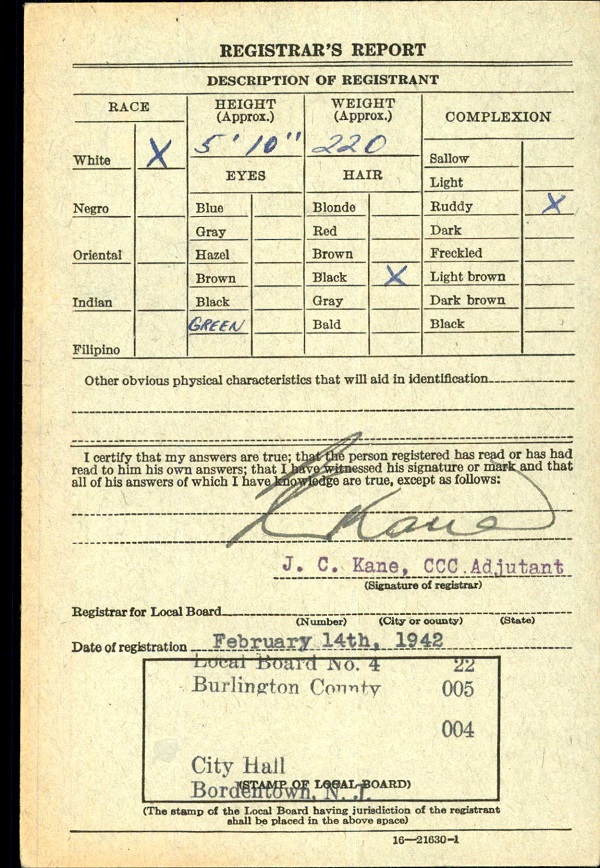 REGISTRAR'S REPORT
DESCRIPTION OF REGISTRANT
RACE
HEIGHT
(Approx.)
WEIGHT
(Approx.)
COMPLEXION
White X
5' 10"
220
Sallow
Light
EYES
HAIR
Negro
Blue
Blonde
Ruddy X
Gray
Red
Dark
Oriental
Hazel
Brown
Freckled
Brown
Black X
Light brown
Indian
Black
Gray
Dark brown
GREEN
Bald
Black
Filipino
Other obvious physical characteristics that will aid in identification
I certify that my answers are true; that the person registered has read or has had
read to him his own answers; that I have witnessed his signature or mark and that
all of his answers of which I have knowledge are true, except as follows:
Kane
J. C. Kane, CCC Adjutant
(Signature of registrar)
Registrar for Local Board
(Number) (City or county) (State)
Date of registration February 14th, 1942
Local Board No. 4 22
Burlington County 005
004
City Hall
(STAMP OF LOCAL BOARD)
Bordentown, N. J.
(The stamp of the Local Board having jurisdiction of the registrant
shall be placed in the above space)
16—21630-1